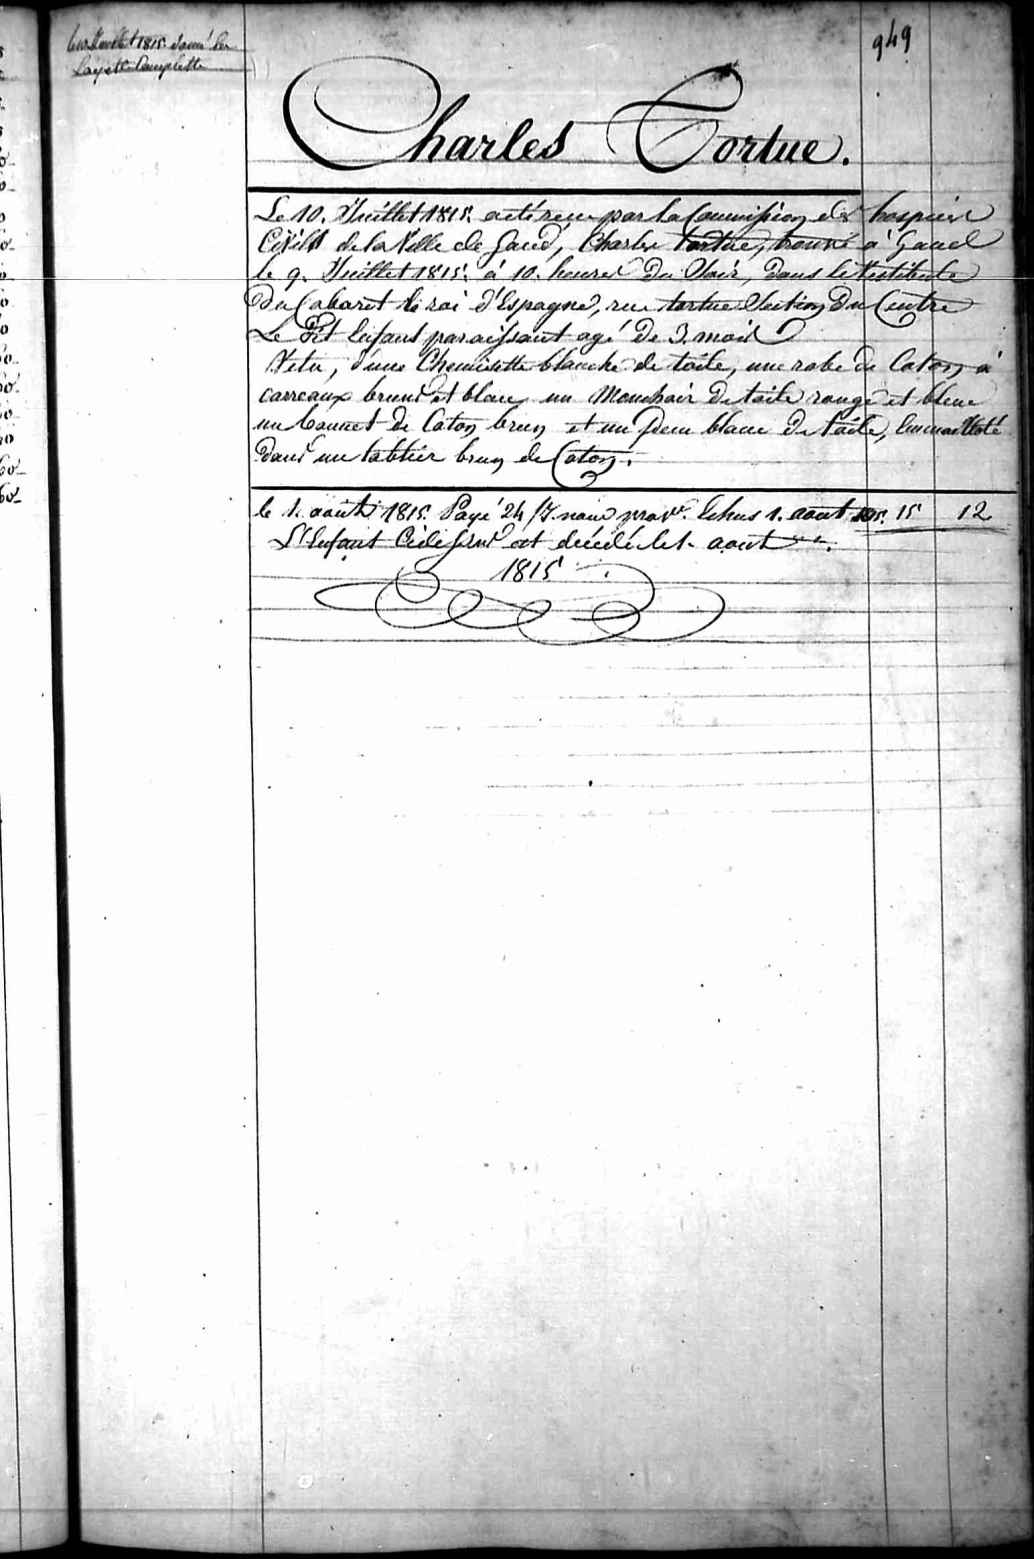 le 10 Juillet 1815 donné la
Layette Complette
949
Charles Tortue.
Le 10. Juillet 1815. a été recu par la Commission des hospices
Civils de la Ville de Gand, Charles tortue, trouvé à Gand
le 9. Juillet 1815. à 10. heures du Soir, dans le Vestibule
du Cabaret le roi d'Espagne, rue tortue Section du Centre
Le dit Enfant paraissant agé de 3. mois
Vetu, d'une Chemisette blanche de toile, une robe de Coton à
carreaux bruns et blanc un Mouchoir de toile rouge et bleue
un bonnet de Coton brun et un blanc de toile, Emmailloté
dans un tablier brun de Coton.
le 1. août 1815. Payé 24 Echus 1. aout 1815. 15 12
L'Enfant Cidessus est décédé le 1. aout
1815.